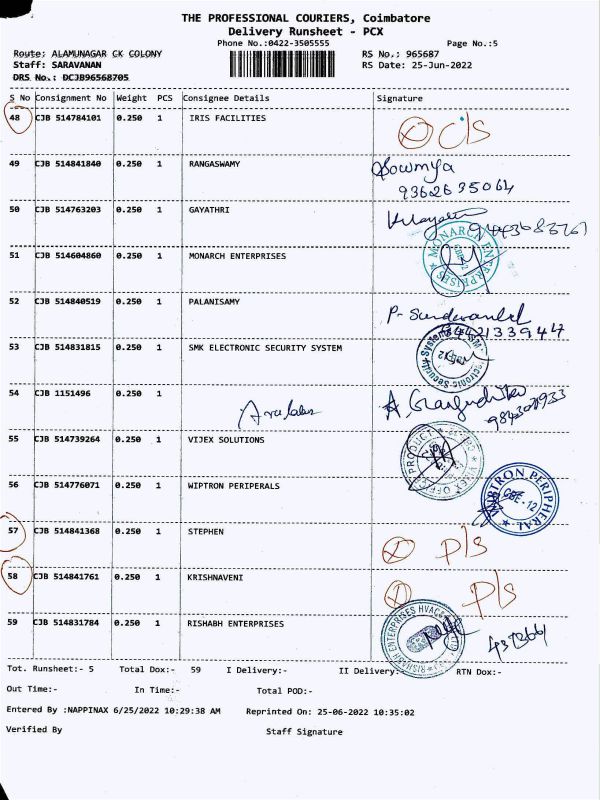 THE PROFESSIONAL COURIERS, Coimbatore
Delivery Runsheet - PCX
Phone No.:0422-3505555 Page No.:5
Route: ALAMUNAGAR CK COLONY RS No.: 965687
Staff: SARAVANAN RS Date: 25-Jun-2022
DRS No.: DCJB96568705
S No Consignment No Weight PCS Consignee Details Signature
48 CJB 514784101 0.250 1 IRIS FACILITIES
49 CJB 514841840 0.250 1 RANGASWAMY Sowmya
9362635064
50 CJB 514763203 0.250 1 GAYATHRI
51 CJB 514604860 0.250 1 MONARCH ENTERPRISES MONARCH ENTERPRISES
52 CJB 514840519 0.250 1 PALANISAMY
53 CJB 514831815 0.250 1 SMK ELECTRONIC SECURITY SYSTEM
54 CJB 1151496 0.250 1
55 CJB 514739264 0.250 1 VIJEX SOLUTIONS
56 CJB 514776071 0.250 1 WIPTRON PERIPERALS WIPTRON PERIPHERAL
57 CJB 514841368 0.250 1 STEPHEN P/S
58 CJB 514841761 0.250 1 KRISHNAVENI P/S
59 CJB 514831784 0.250 1 RISHABH ENTERPRISES RISHABH ENTERPRISES HVAC
Tot. Runsheet:- 5 Total Dox:- 59 I Delivery:- II Delivery:- RTN Dox:-
Out Time:- In Time:- Total POD:-
Entered By :NAPPINAX 6/25/2022 10:29:38 AM Reprinted On: 25-06-2022 10:35:02
Verified By Staff Signature